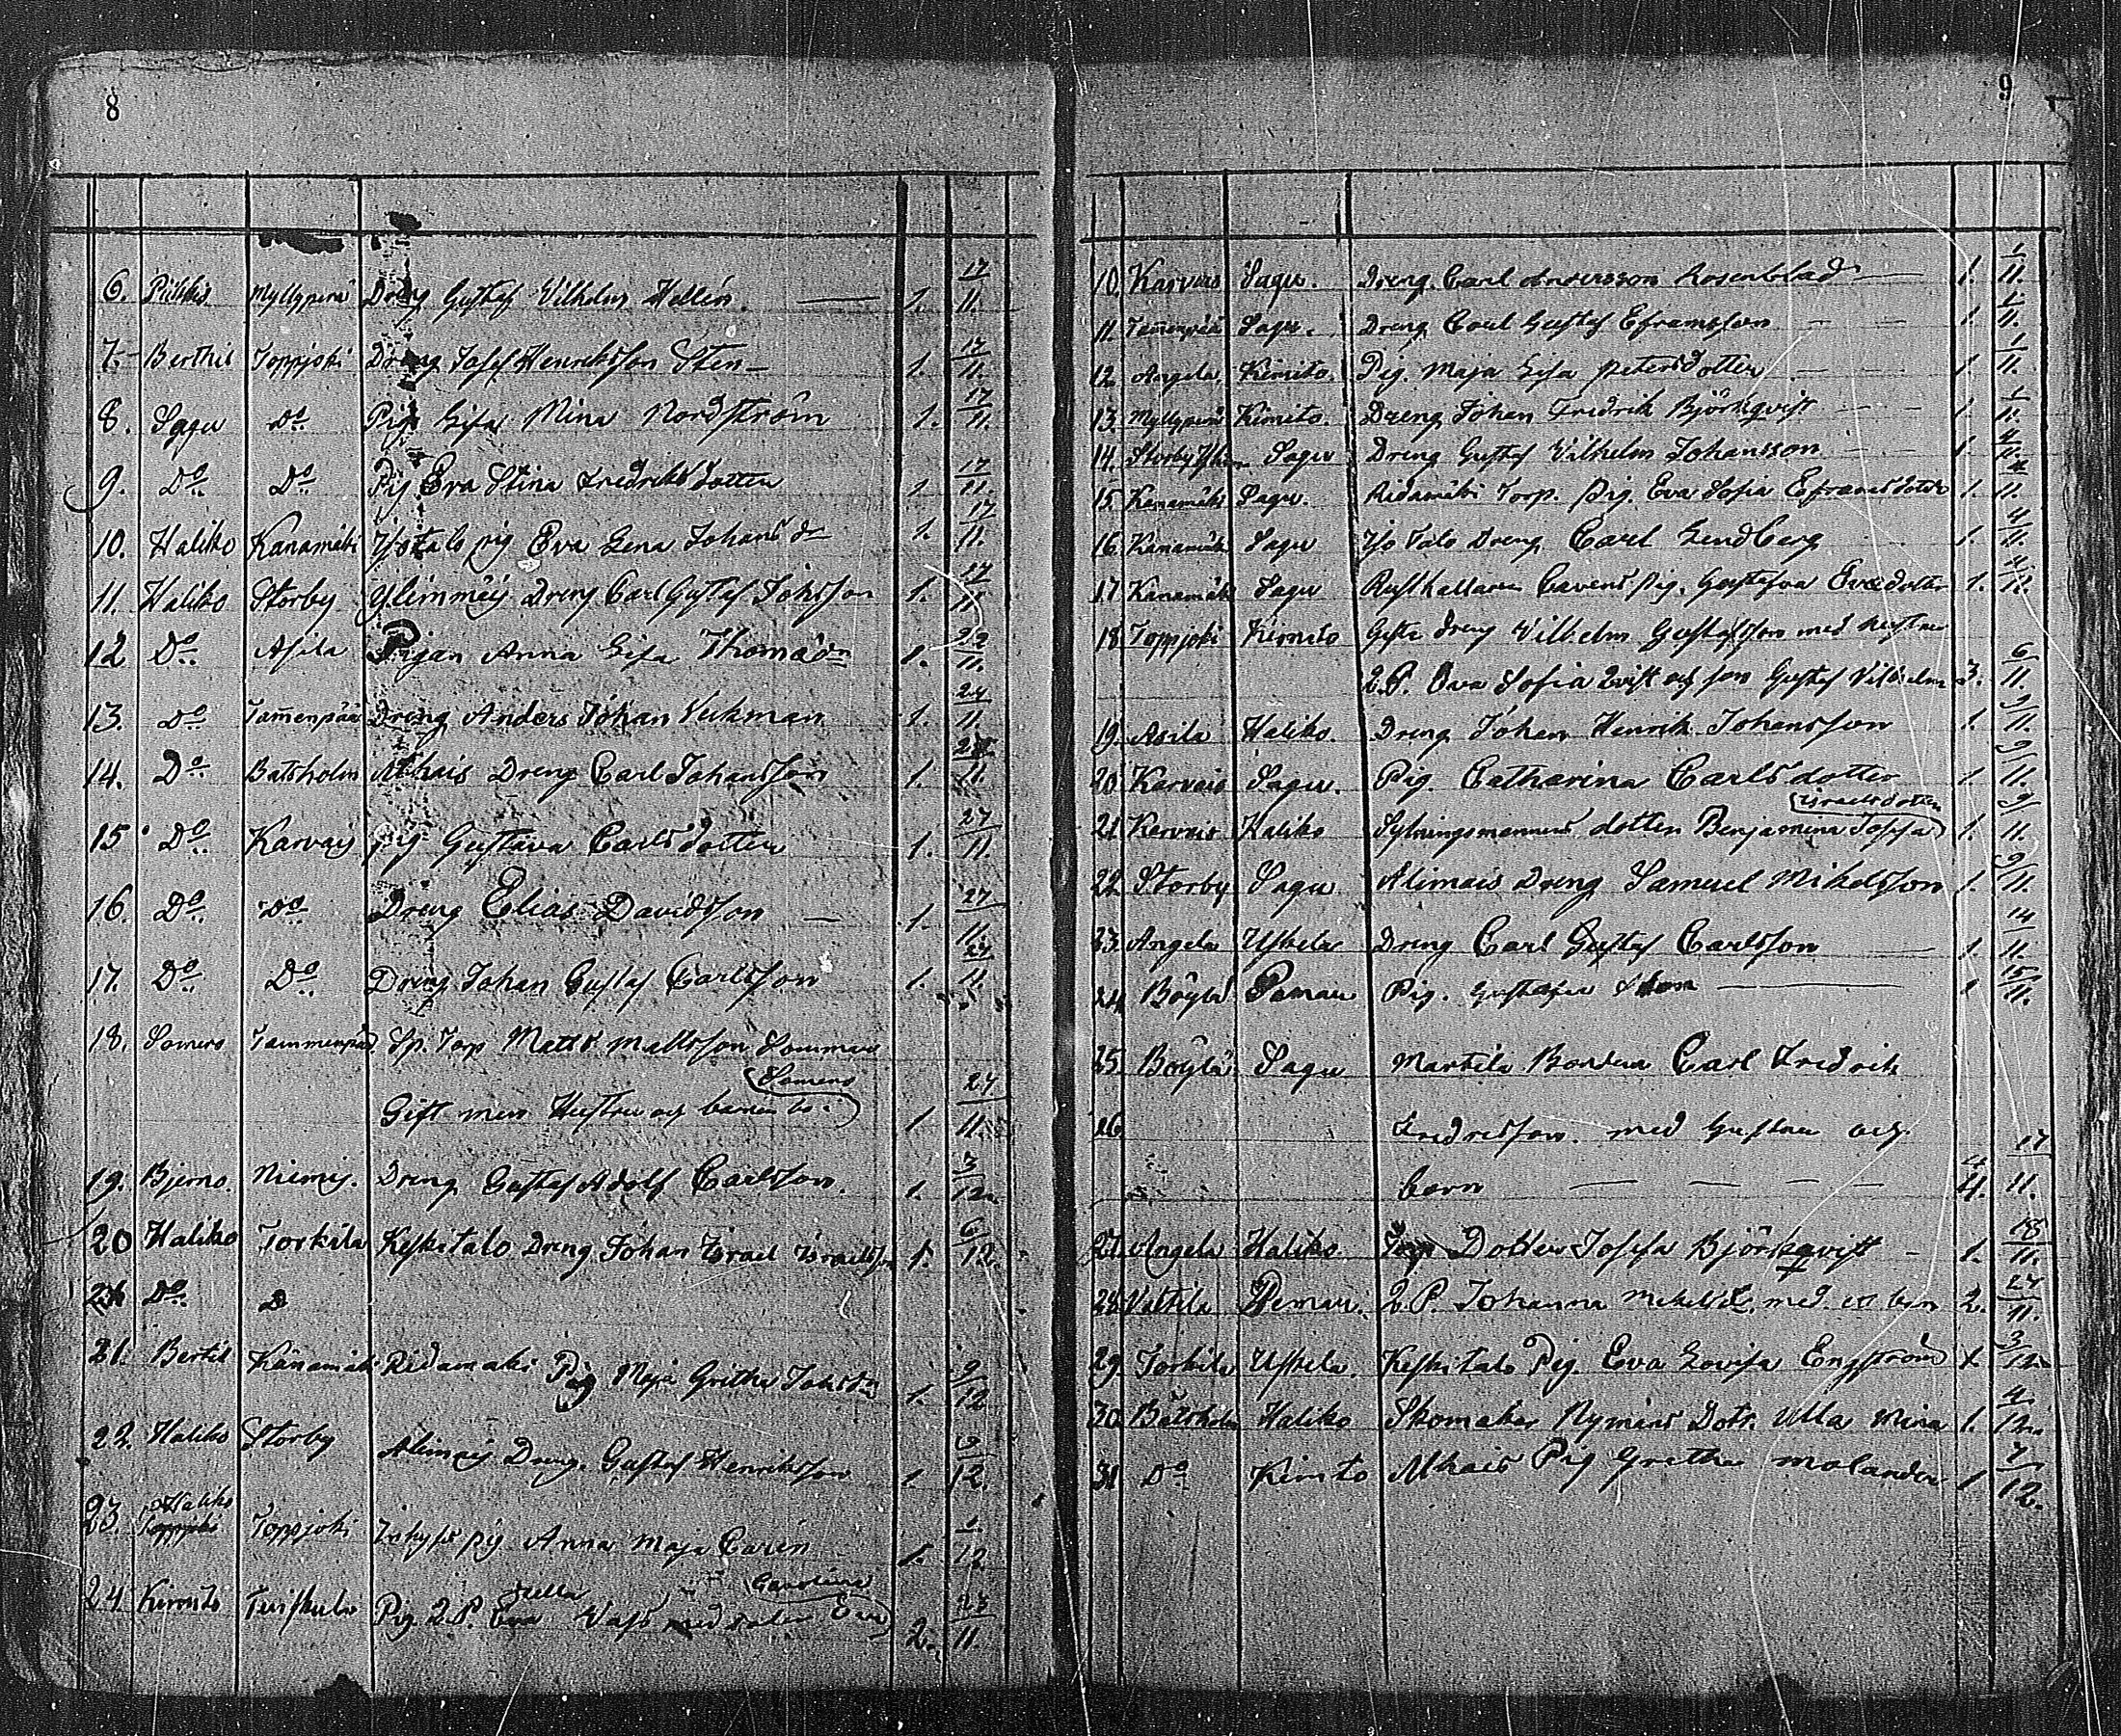 8
6. Pikkis Myllyperä Dreng Gustaf Vilhelm Hellén. — 1. 17/11.
7. Berthil Toppjoki Dreng Josef Henriksson Sten — 1. 17/11.
8. Sagu Do Pig Lisa Mina Nordström 1. 17/11.
9. Do Do Pig Eva Stina Fredriksdotter 1 17/11.
10. Haliko Kanamäki Yjotalo pig Eva Lena Johans dr 1. 17/11.
11. Haliko Storby Dreng Carl Gustaf Johsson 1. 17/11
12 Do Asila Pigan Anna Lisa Thomædr 1. 22/11.
13. Do Tam̄enpää Dreng Anders Johan Vickman 1. 24/11.
14. Do Båtsholm Dreng Carl Johansson 1. 11.
15. Do Karvais pig Gustava Carlsdotter 1. 27/11.
16. Do Do Dreng Elias Davidsson — 1. 27/11.
17. Do Do Dreng Johan Gustaf Carlsson 1. 27/11.
18. Somero Tammenpää Sp. Torp Matts Mattsson
Somero
Gift men Hustru och barnen 1 27/11.
19. Bjerno. Niemis. Dreng Gustaf Adolf Carlsson. 1. 3/12.
20 Haliko Torkila Keskitalo Dreng Johan Israel Israelsson 1. 6/12.
Do. D
21. Bertil Kanamäki Ridamäki Pig Maja Gretha Johsdr 1. 9/12
22. Haliko Storby Alimais Dreng. Gustaf Henriksson 1. 9/12.
Haliko
23. Toppjoki Toppjoki pig Anna Maja Carén 1. 12
Ulla Carolina
24 Kimito Pig. 2. P. Eva med dotter Eva 2. 27/11
9
10. Karvais Sagu. Dreng. Carl Andersson Rosenblad — 1. 1/11.
11. Tam̄enpää Sagu. Dreng Carl Gustaf Eframsson — 1. 1/11.
12. Angela, Kimito. Pig. Maja Lisa Petersdotter — 1. 1/11.
13. Myllyperä Kimito. Dreng Johan Fredrik Björkqvist — 1. 1/11.
14. Storby Sagu Dreng Gustaf Vilhelm Johansson — 1. 4/11.
15. Kanamäki Sagu. Ridamäki Torp. Pig. Eva Sofia Eframsdotter 1. 4/11.
16. Kanamäki Sagu Yjo Talo Dreng Carl Lindberg 1. 4/11.
17 Kanamäki Sagu Rusthallaren Carens Pig. Gustafva dotter 1. 11.
18. Toppjoki Kimito Gifta dreng Vilhelm Gustafsson med hustru
2. P. Eva Sofia Qvist och son Gustaf Vilhelm 3. 6/11
19. Asila Haliko. Dreng Johan Henrik Johansson 1. 9/11.
20. Karvais Sagu. Pig. Catharina Carlsdotter 1. 9/11.
Israelsdotter
21. Karvais Haliko Sytningsmannens dotter Benjamina Josefa 1. 9/11.
22. Storby Sagu Alimais Dreng Samuel Mikelsson 1. 9/11.
23. Angela Uskela Dreng Carl Gustaf Carlsson — 1. 14/11.
24. Böylä Pemar Pig. Gustafva — 1 15/11.
25. Böylä Sagu Martila Bonden Carl Fredrik
26. Fredrikson. med hustru och
barn — — — — 4. 17/11.
27. Angela Haliko Dotter Josefa Björkqvist — 1. 18/11.
28. Valtila Pemar. 2 P. Johanna Mikelsd. med ett barn 2. 27/11.
29. Torkila Uskela. Keskitalo Pig. Eva Lovisa Engström 1. 3/12
30. Båtsholm Haliko Skomaker Nymans Dotr. Ulla Mina 1. 4/12.
31 Do Kimito Pig Gretha Molander 1 7/12.